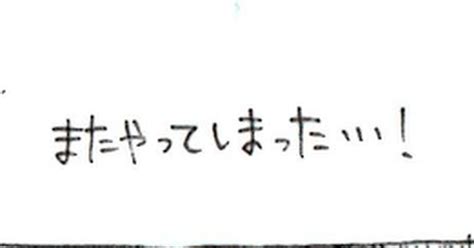 またやってしまった…!